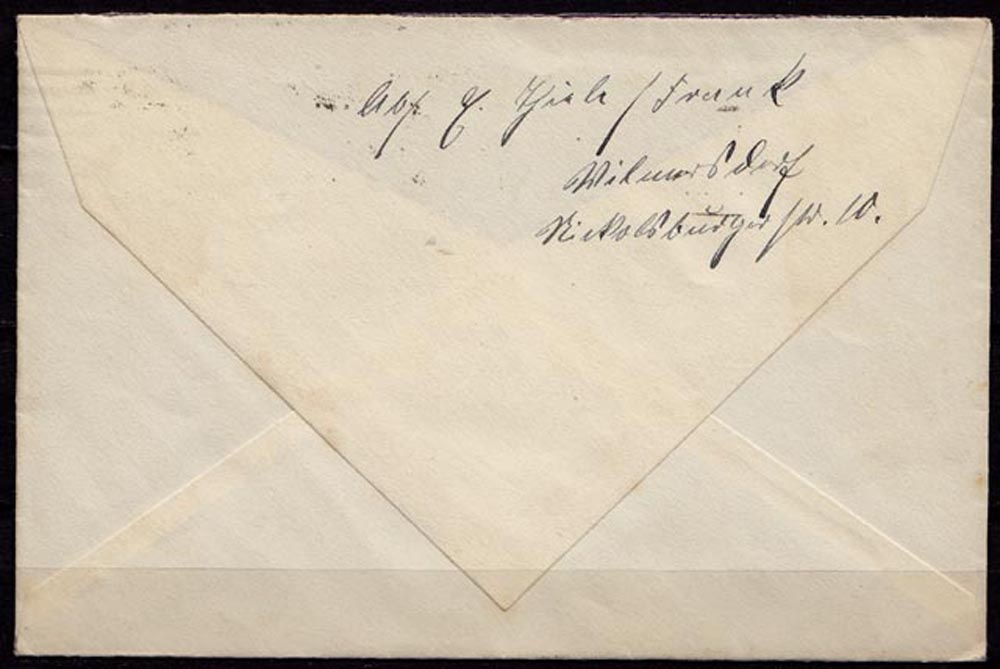 Abs. E. Thiele / Frank
Wilmersdorf
Nickolsburger str. 10.